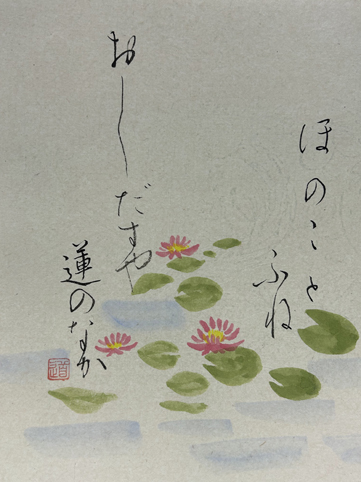 ほのゝと
ふね
おしだすや
蓮のなか